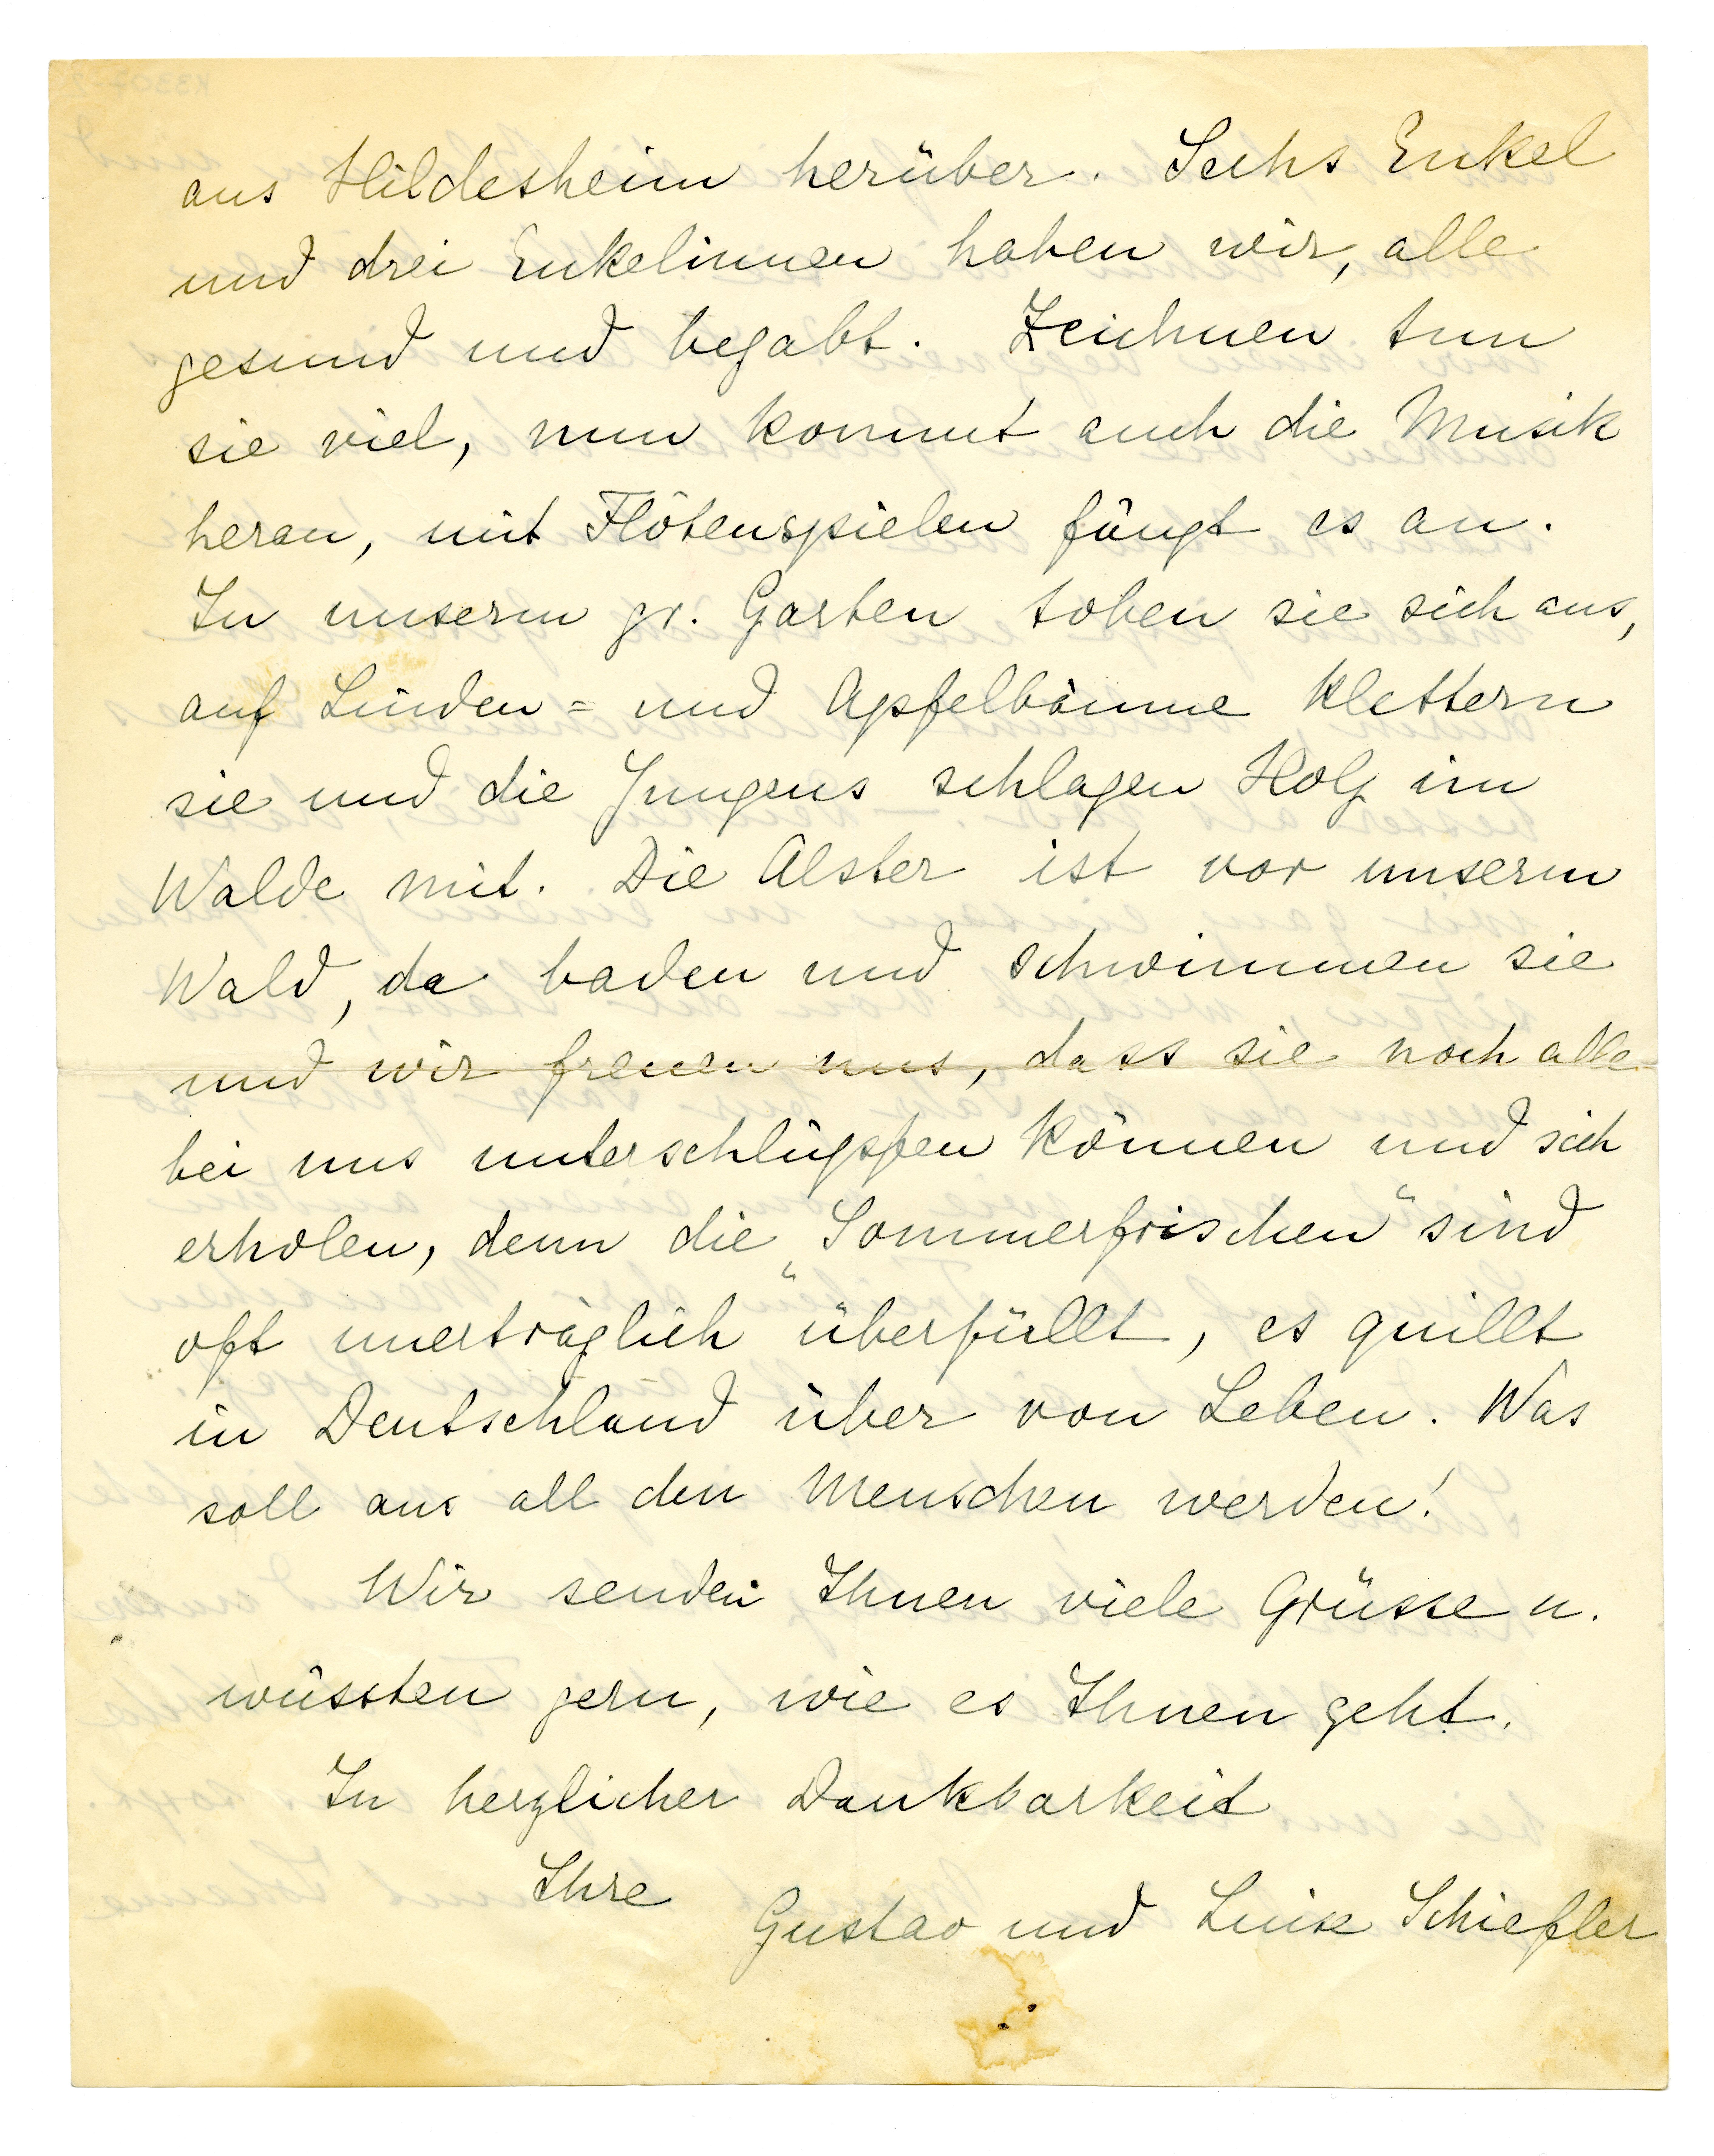 aus Hildesheim herüber. Sechs Enkel
und drei Enkelinnen haben wir, alle
gesund und begabt. Zeichnen tun
sie viel, nun kommt auch die Musik
heran, mit Flötenspielen fängt es an.
In unserm gr. Garten toben sie sich aus,
auf Linden= und Apfelbäume klettern
sie und die Jungens schlagen Holz im
Walde mit. Die Alster ist vor unserm
Wald, da baden und schwimmen sie
und wir freuen uns, dass sie noch alle
bei uns unterschlüpfen können und sich
erholen, denn die „Sommerfrischen“ sind
oft unerträglich überfüllt, es quillt
in Deutschland über von Leben. Was
soll aus all den Menschen werden!
Wir senden Ihnen viele Grüsse u.
wüssten gern, wie es Ihnen geht.
In herzlicher Dankbarkeit
Ihre
Gustav und Luise Schiefler